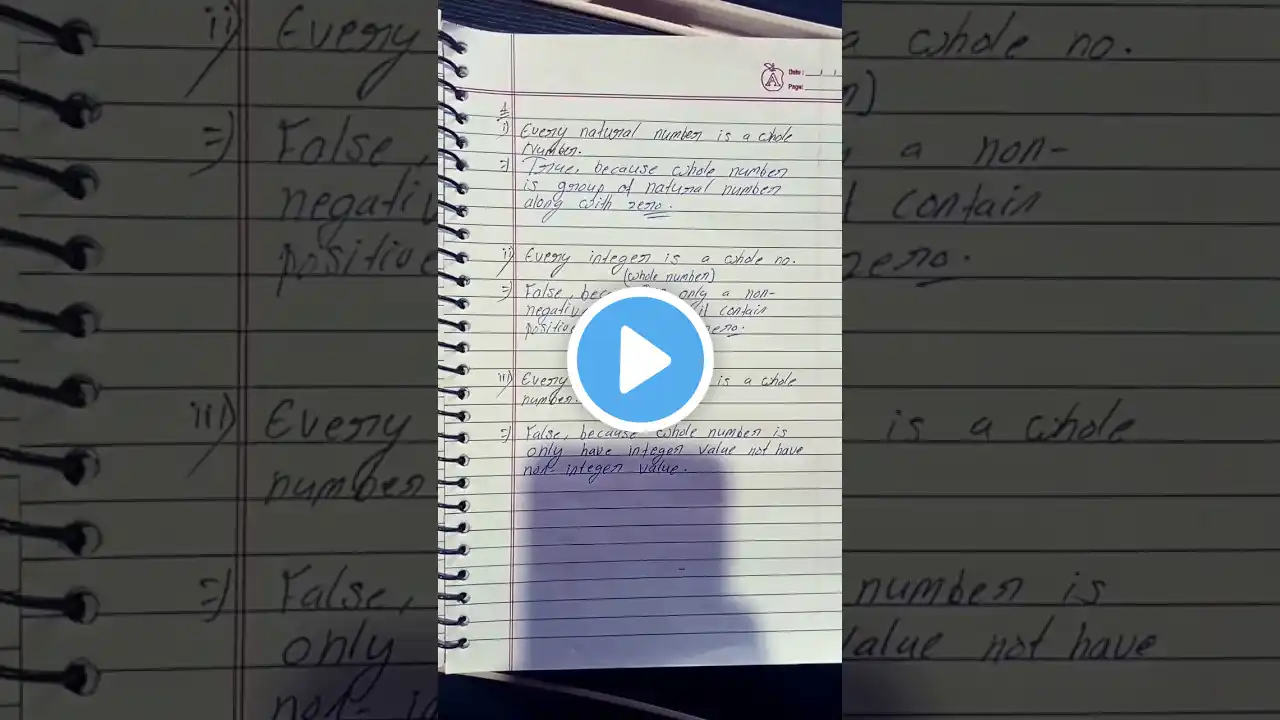 Date :
Page:
4
i) Every natural number is a whole
Number.
=) True, because whole number
is group of natural number
along with zero.
ii) Every integer is a whole no.
(whole number)
=) False, only a non-
contain
zero.
iii) Every is a whole
number.
=) False, because whole number is
only have integer value not have
non-integer value.